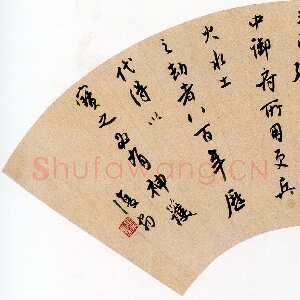 中御府所用更兵
火水土
之劫者八百年歷
代得以
寶之為有神護
ShufaWang.CN